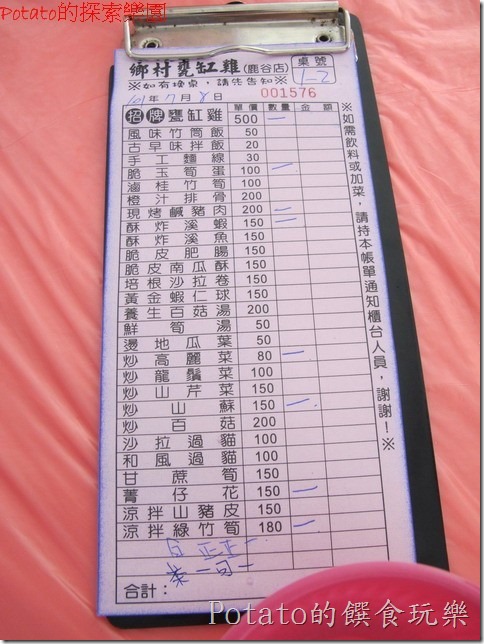 Potato的探索樂園
鄉村甕缸雞(鹿谷店)
桌號
12
※如有換桌，請告知※
101年7月8日
001576
招牌甕缸雞 單價 數量 金額
500 一
風味竹筒飯 50
古早味拌飯 20
手工麵線 30
脆玉筍蛋 100 一
滷桂竹筍 100
橙汁排骨 200
現烤鹹豬肉 200 一
酥炸溪蝦 150 一
酥炸溪魚 150
脆皮肥腸 150
脆皮南瓜酥 150
培根沙拉卷 150
黃金蝦仁球 150
養生百菇湯 200
鮮筍湯 50
燙地瓜葉 50
炒高麗菜 80 一
炒龍鬚菜 100
炒山芹菜 150
炒山蘇 150 一
炒百菇 200
沙拉過貓 100
和風過貓 100
甘蔗筍 150
菁仔花 150 一
涼拌山豬皮 150
涼拌綠竹筍 180 一
白 正正一
合計：
※如需飲料或加菜，請持本帳單通知櫃台人員，謝謝！※
Potato的饌食玩樂